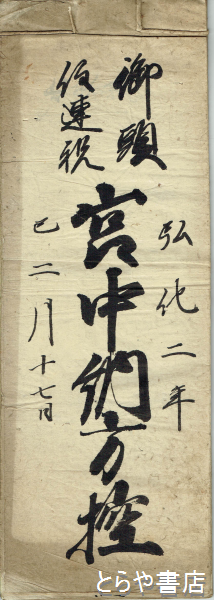 御頭
仮連税
弘化二年
宮中納方控
巳二月十七日
とらや書店